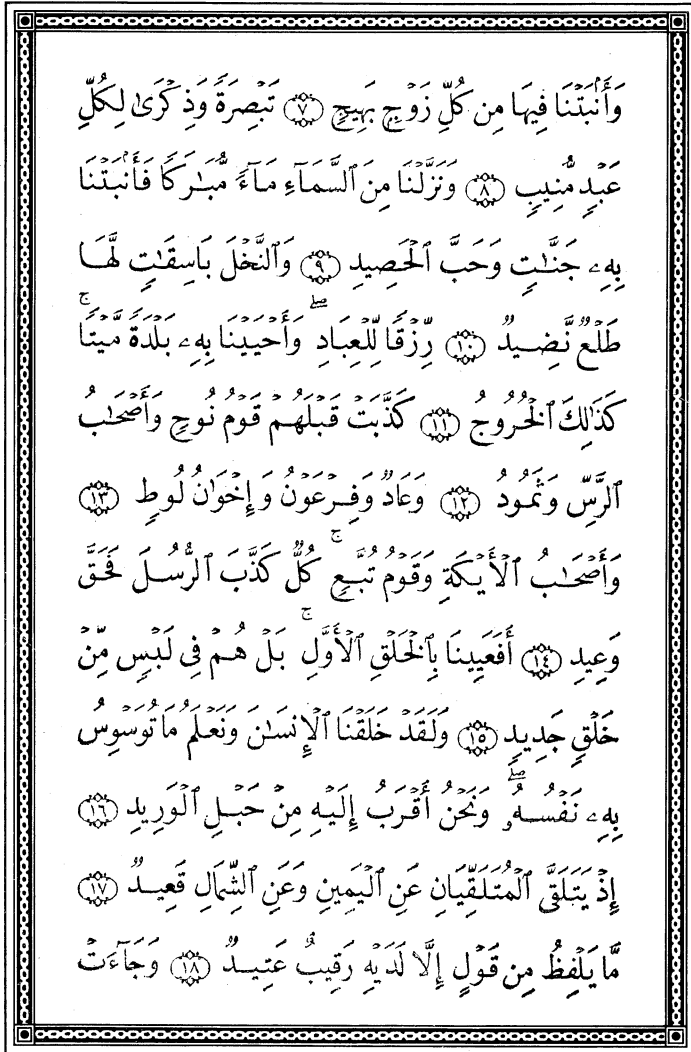 وَأَنۢبَتۡنَا فِيهَا مِن كُلِّ زَوۡجِۭ بَهِيجٖ ٧ تَبۡصِرَةٗ وَذِكۡرَىٰ لِكُلِّ
عَبۡدٖ مُّنِيبٖ ٨ وَنَزَّلۡنَا مِنَ ٱلسَّمَآءِ مَآءٗ مُّبَٰرَكٗا فَأَنۢبَتۡنَا
بِهِۦ جَنَّٰتٖ وَحَبَّ ٱلۡحَصِيدِ ٩ وَٱلنَّخۡلَ بَاسِقَٰتٖ لَّهَا
طَلۡعٞ نَّضِيدٞ ١٠ رِّزۡقٗا لِّلۡعِبَادِۖ وَأَحۡيَيۡنَا بِهِۦ بَلۡدَةٗ مَّيۡتٗاۚ
كَذَٰلِكَ ٱلۡخُرُوجُ ١١ كَذَّبَتۡ قَبۡلَهُمۡ قَوۡمُ نُوحٖ وَأَصۡحَٰبُ
ٱلرَّسِّ وَثَمُودُ ١٢ وَعَادٞ وَفِرۡعَوۡنُ وَإِخۡوَٰنُ لُوطٖ ١٣
وَأَصۡحَٰبُ ٱلۡأَيۡكَةِ وَقَوۡمُ تُبَّعٖۚ كُلّٞ كَذَّبَ ٱلرُّسُلَ فَحَقَّ
وَعِيدِ ١٤ أَفَعَيِينَا بِٱلۡخَلۡقِ ٱلۡأَوَّلِۚ بَلۡ هُمۡ فِي لَبۡسٖ مِّنۡ
خَلۡقٖ جَدِيدٖ ١٥ وَلَقَدۡ خَلَقۡنَا ٱلۡإِنسَٰنَ وَنَعۡلَمُ مَا تُوَسۡوِسُ
بِهِۦ نَفۡسُهُۥۖ وَنَحۡنُ أَقۡرَبُ إِلَيۡهِ مِنۡ حَبۡلِ ٱلۡوَرِيدِ ١٦
إِذۡ يَتَلَقَّى ٱلۡمُتَلَقِّيَانِ عَنِ ٱلۡيَمِينِ وَعَنِ ٱلشِّمَالِ قَعِيدٞ ١٧
مَّا يَلۡفِظُ مِن قَوۡلٍ إِلَّا لَدَيۡهِ رَقِيبٌ عَتِيدٞ ١٨ وَجَآءَتۡ